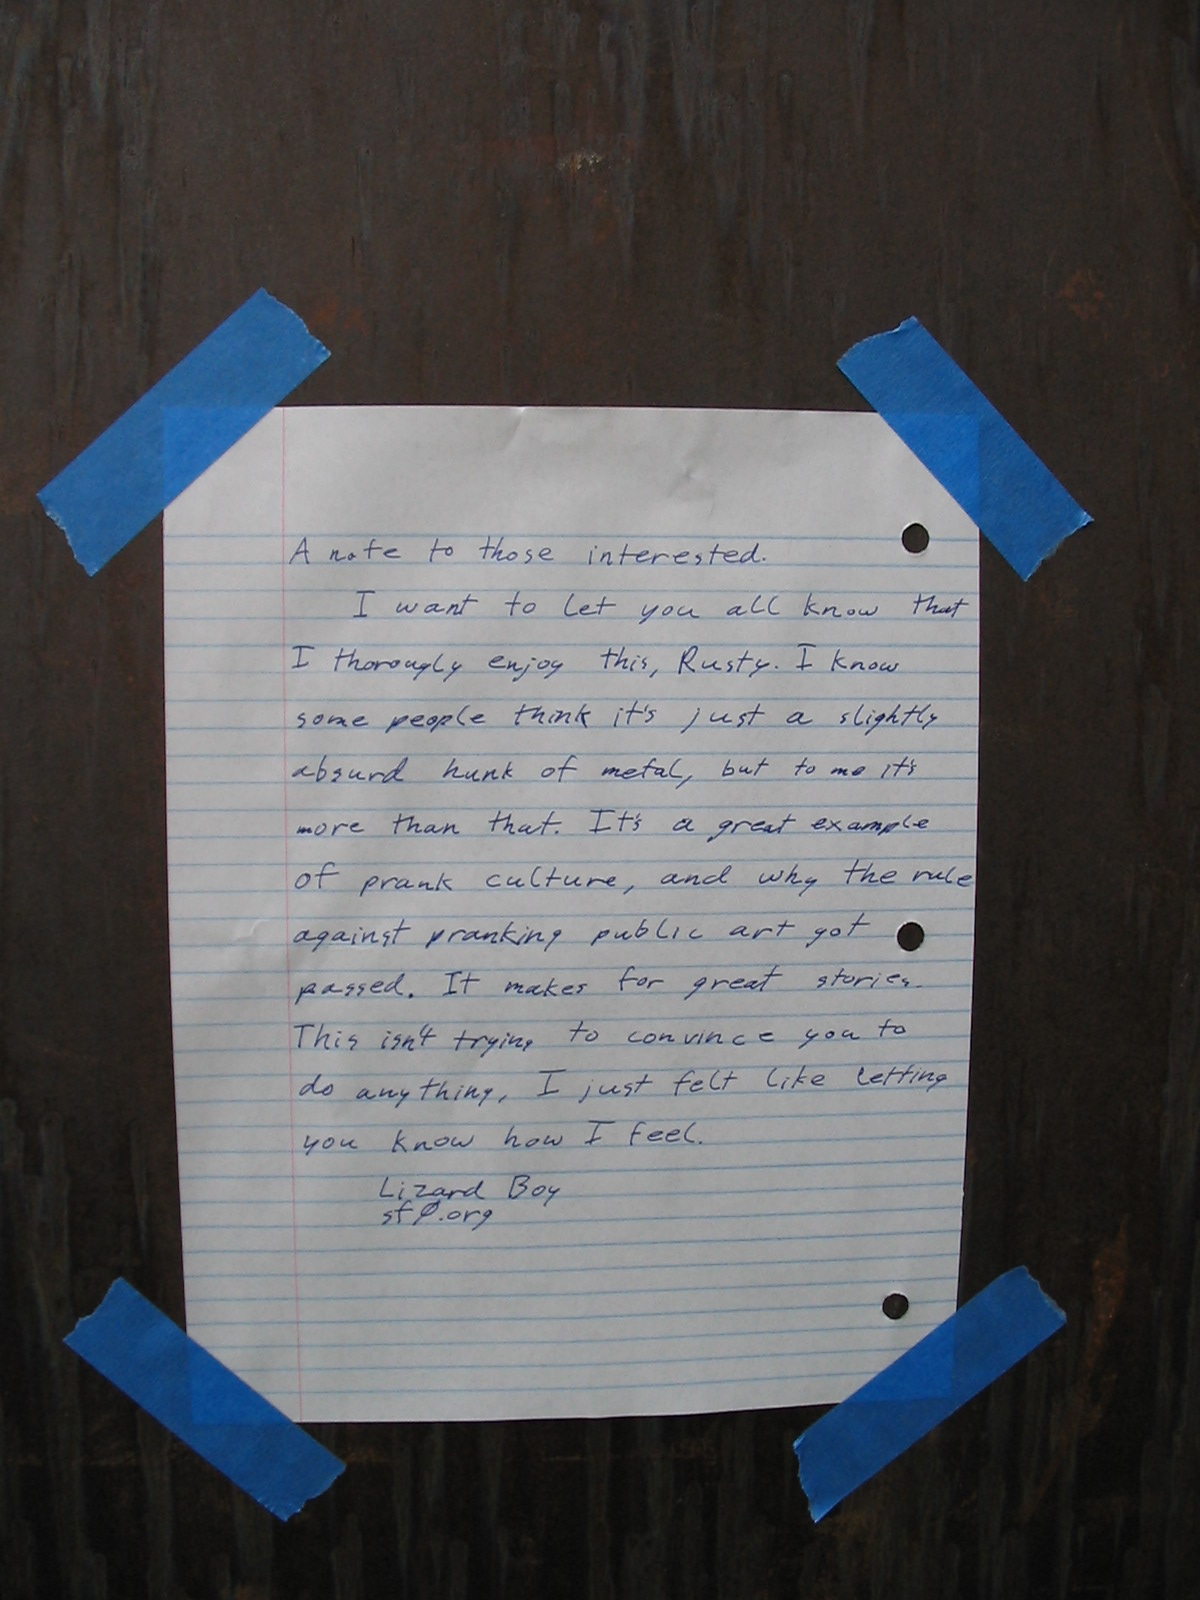 A note to those interested.
I want to let you all know that
I thorougly enjoy this, Rusty. I know
some people think it's just a slightly
absurd hunk of metal, but to me it's
more than that. It's a great example
of prank culture, and why the rule
against pranking public art got
passed. It makes for great stories.
This isn't trying to convince you to
do anything, I just felt like letting
you know how I feel.
Lizard Boy
sf0.org